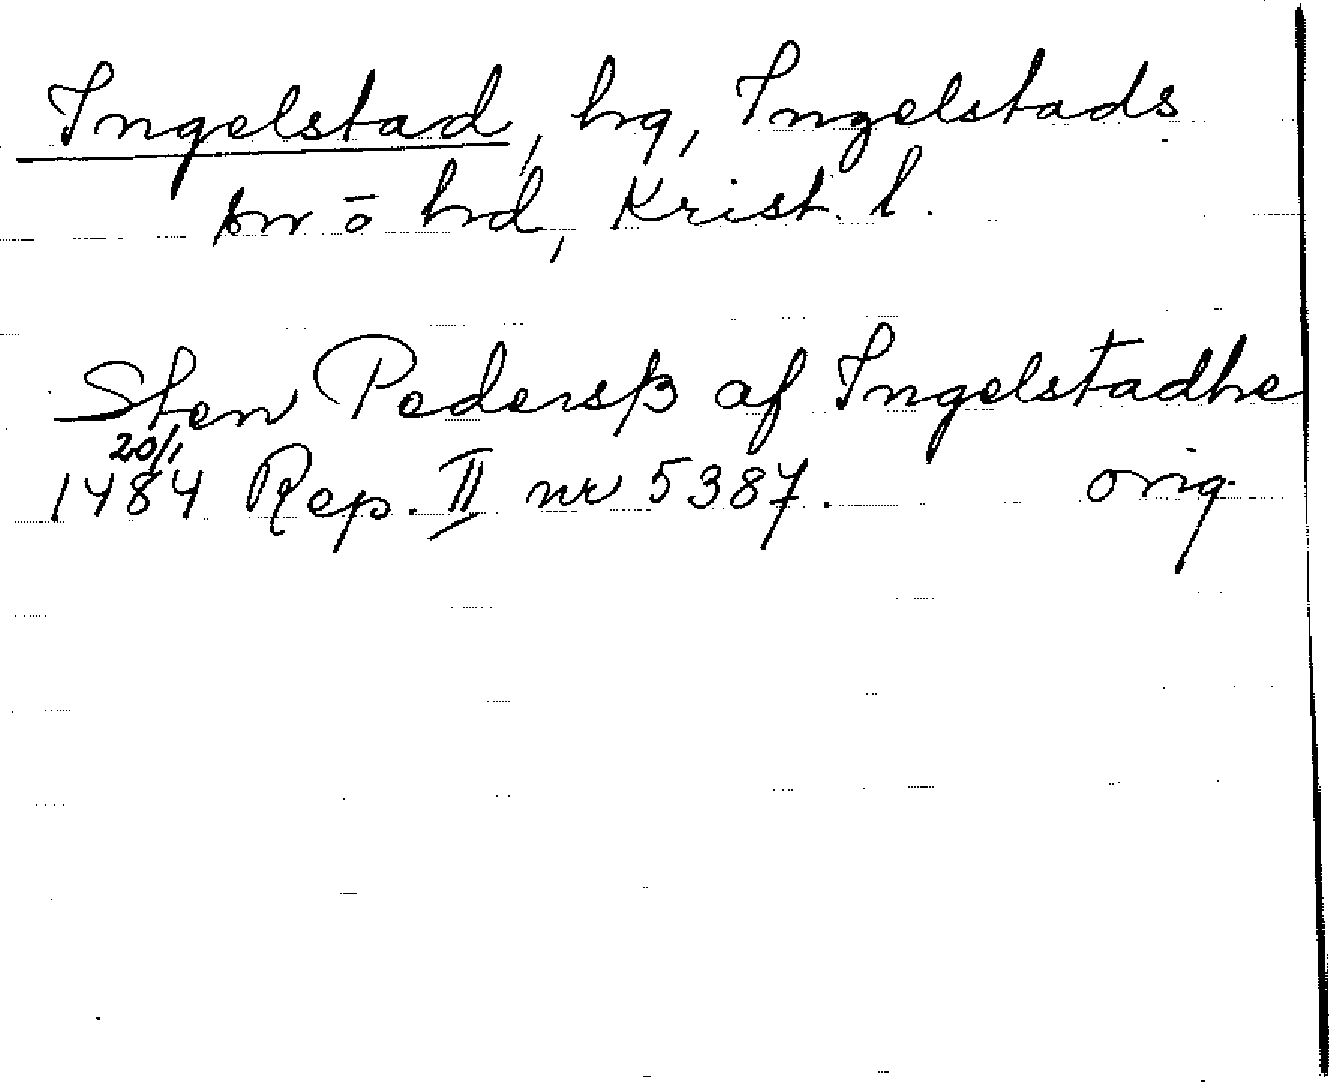 Ingelstad, hg, Ingelstads
sn ō hd, Krist. l.
Sten Pedersß af Ingelstadhe
20/1
1484 Rep. II nr 5387. orig